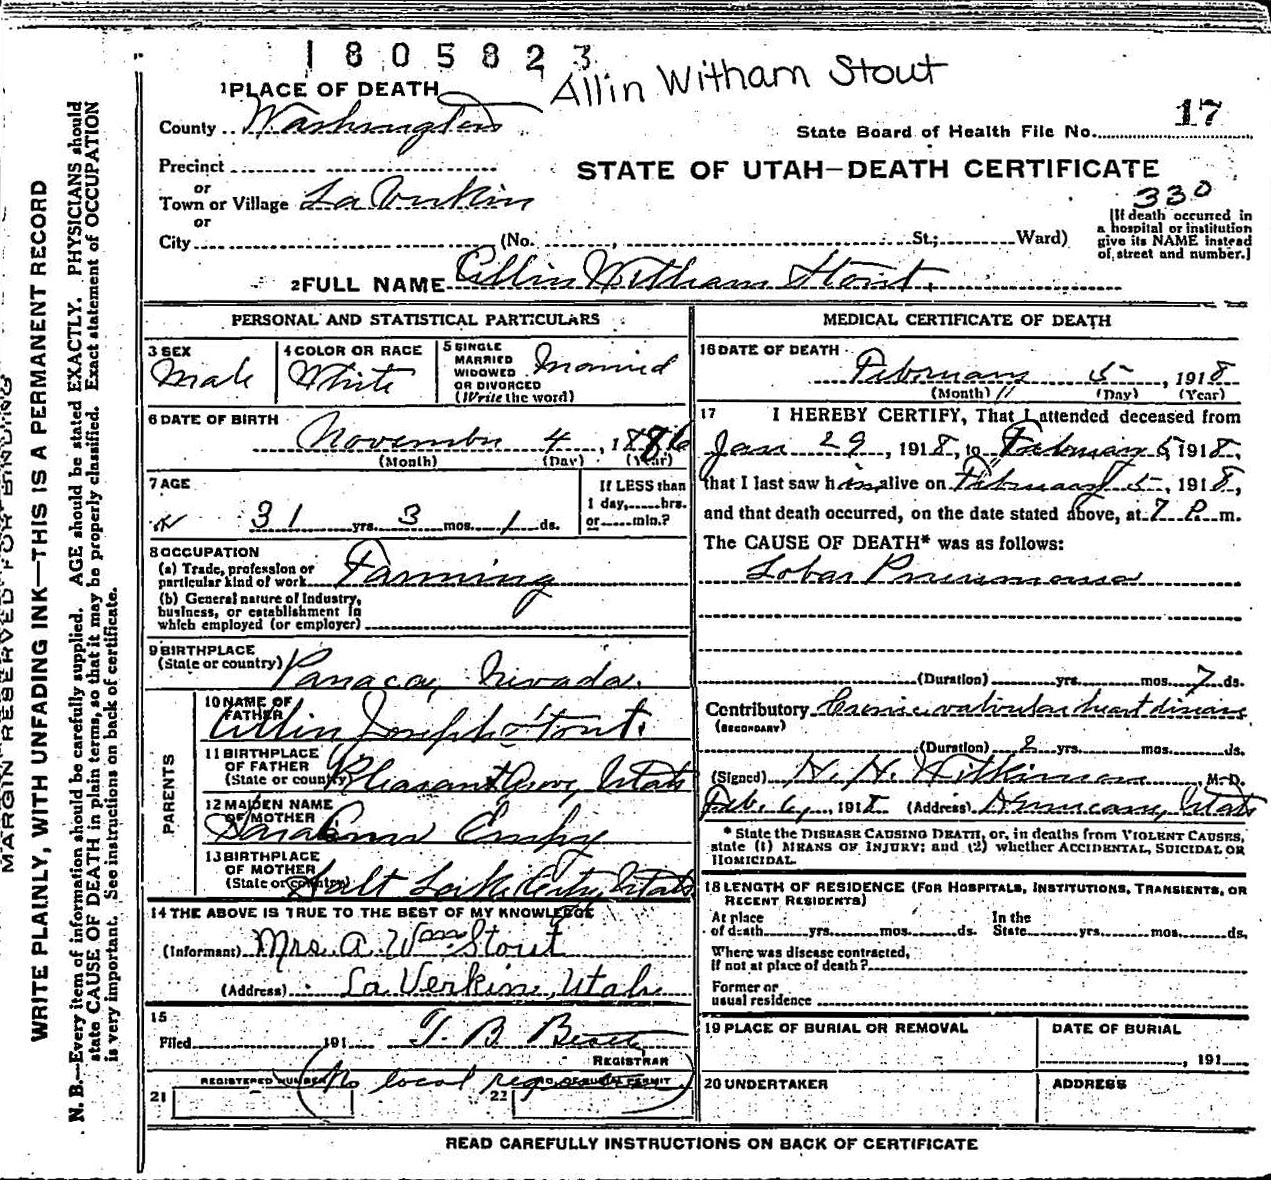 1805823
Allin Witham Stout
1 PLACE OF DEATH
County Washington
State Board of Health File No. 17
Precinct
STATE OF UTAH—DEATH CERTIFICATE
or
330
Town or Village La Verkin
or
City (No. , St.; Ward)
[If death occurred in
a hospital or institution
give its NAME instead
of street and number.]
2 FULL NAME Allin Witham Stout.
PERSONAL AND STATISTICAL PARTICULARS
3 SEX
Male
4 COLOR OR RACE
White
5 SINGLE
MARRIED
WIDOWED
OR DIVORCED
(Write the word)
Married
6 DATE OF BIRTH
November 4, 1886
(Month) (Day) (Year)
7 AGE
31 yrs. 3 mos. 1 ds.
If LESS than
1 day, hrs.
or min.?
8 OCCUPATION
(a) Trade, profession or
particular kind of work Farming
(b) General nature of Industry,
business, or establishment in
which employed (or employer)
9 BIRTHPLACE
(State or country) Panaca, Nevada.
PARENTS
10 NAME OF
FATHER
Allin Joseph Stout.
11 BIRTHPLACE
OF FATHER
(State or country) Pleasant Grove, Utah
12 MAIDEN NAME
OF MOTHER
Sarah Ann Empy
13 BIRTHPLACE
OF MOTHER
(State or country) Salt Lake City, Utah
14 THE ABOVE IS TRUE TO THE BEST OF MY KNOWLEDGE
(Informant) Mrs. A. Wm Stout
(Address) La Verkin, Utah
15
Filed 191 T. B. Beatty
REGISTRAR
REGISTERED NUMBER
(No local registrar)
21
22
MEDICAL CERTIFICATE OF DEATH
16 DATE OF DEATH
February 5, 1918
(Month) (Day) (Year)
17 I HEREBY CERTIFY, That I attended deceased from
Jan 29, 1918, to February 5, 1918,
that I last saw him alive on February 5, 1918,
and that death occurred, on the date stated above, at 7 P. m.
The CAUSE OF DEATH* was as follows:
Lobar Pneumonia
(Duration) yrs. mos. 7 ds.
Contributory Cronic valvular heart disease
(SECONDARY)
(Duration) 2 yrs. mos. ds.
(Signed) H. H. Wilkinson, M. D.
Feb. 6, 1918 (Address) Hurricane, Utah
* State the DISEASE CAUSING DEATH, or, in deaths from VIOLENT CAUSES,
state (1) MEANS OF INJURY; and (2) whether ACCIDENTAL, SUICIDAL OR
HOMICIDAL.
18 LENGTH OF RESIDENCE (FOR HOSPITALS, INSTITUTIONS, TRANSIENTS, OR
RECENT RESIDENTS)
At place
of death yrs. mos. ds.
In the
State yrs. mos. ds.
Where was disease contracted,
if not at place of death?
Former or
usual residence
19 PLACE OF BURIAL OR REMOVAL
DATE OF BURIAL
, 191
20 UNDERTAKER
ADDRESS
READ CAREFULLY INSTRUCTIONS ON BACK OF CERTIFICATE
MARGIN RESERVED FOR BINDING
WRITE PLAINLY, WITH UNFADING INK—THIS IS A PERMANENT RECORD
N. B.—Every item of information should be carefully supplied. AGE should be stated EXACTLY. PHYSICIANS should
state CAUSE OF DEATH in plain terms, so that it may be properly classified. Exact statement of OCCUPATION
is very important. See instructions on back of certificate.